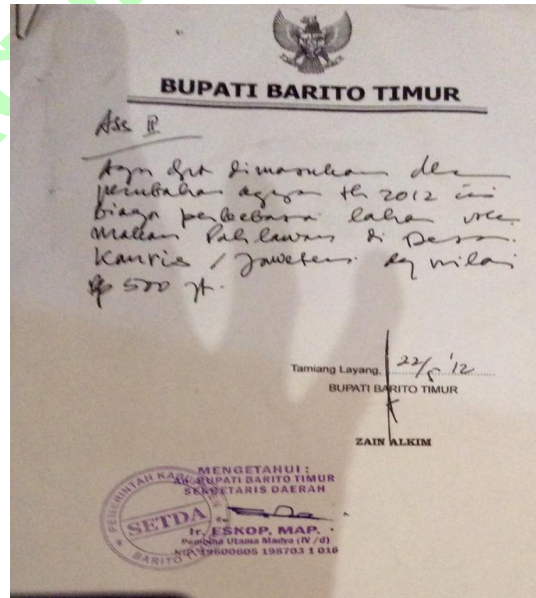 BUPATI BARITO TIMUR
Ass II
Agar dpt dimasukan
perubahan th 2012 ini
biaya lahan
makam Pahlawan di Desa
/ Jaweten dg nilai
Rp 500 jt.
Tamiang Layang, 22/5 '12
BUPATI BARITO TIMUR
ZAIN ALKIM
MENGETAHUI :
An. BUPATI BARITO TIMUR
SEKRETARIS DAERAH
Ir. ESKOP, MAP.
Pembina Utama Madya (IV/d)
NIP. 19600605 198703 1 016
PEMERINTAH KABUPATEN
SETDA
BARITO TIMUR